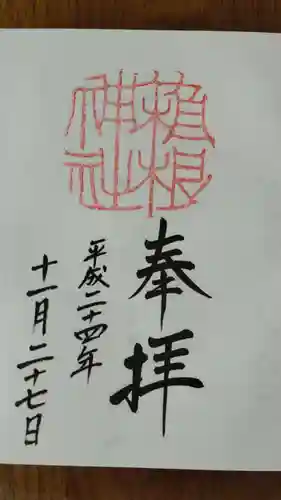 植根
神社
奉拝
平成二十四年
十一月二十七日